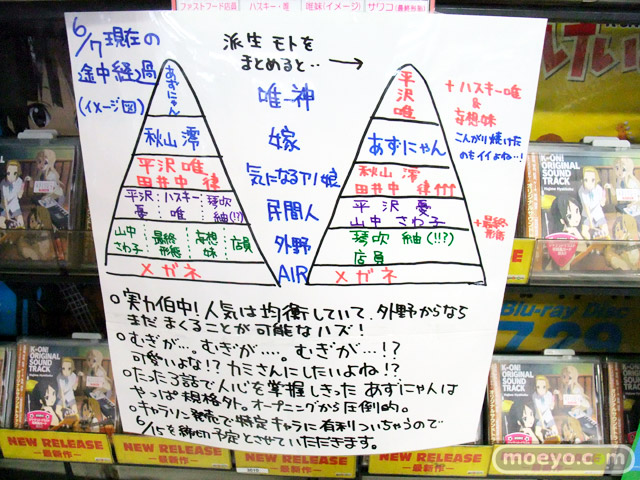 ファストフード店員 ハスキー・唯 唯妹(イメージ) サワコ(最終形態)
6/7現在の
途中経過
(イメージ図)
派生モトを
まとめると‥→
あずにゃん
秋山 澪
平沢 唯
田井中 律
平沢 憂
ハスキー 唯
琴吹 紬(!?)
山中 さわ子
最終形態
妄想妹
店員
メガネ
唯一神
嫁
気になるアノ娘
民間人
外野
AIR
平沢 唯
あずにゃん
秋山 澪
田井中 律
平沢 憂
山中 さわ子
琴吹 紬(!!?)
店員
メガネ
+ハスキー唯
&
妄想・妹
こんがり焼けた
のもイイよね…!
+最終形態
○実力伯中!人気は均衡していて、外野からなら
まだまくることが可能なハズ!
○むぎが…。むぎが‥‥。むぎが…!?
可愛いよな!?カミさんにしたいよね!?
○たった3話で人心を掌握しきったあずにゃんは
やっぱ規格外。オープニングから圧倒的。
○キャラソン発売で特定キャラに有利ついちゃうので
6/15を締切予定とさせていただきます。
K-ON!
ORIGINAL
SOUND
TRACK
K-ON!
ORIGINAL SOUND
TRACK
Blu-ray Disc
7.29
NEW RELEASE
-最新作-
NEW RELEASE
-最新作-
NEW RELEASE
-最新作-
NEW RELEASE
-最新作-
moeyo.com